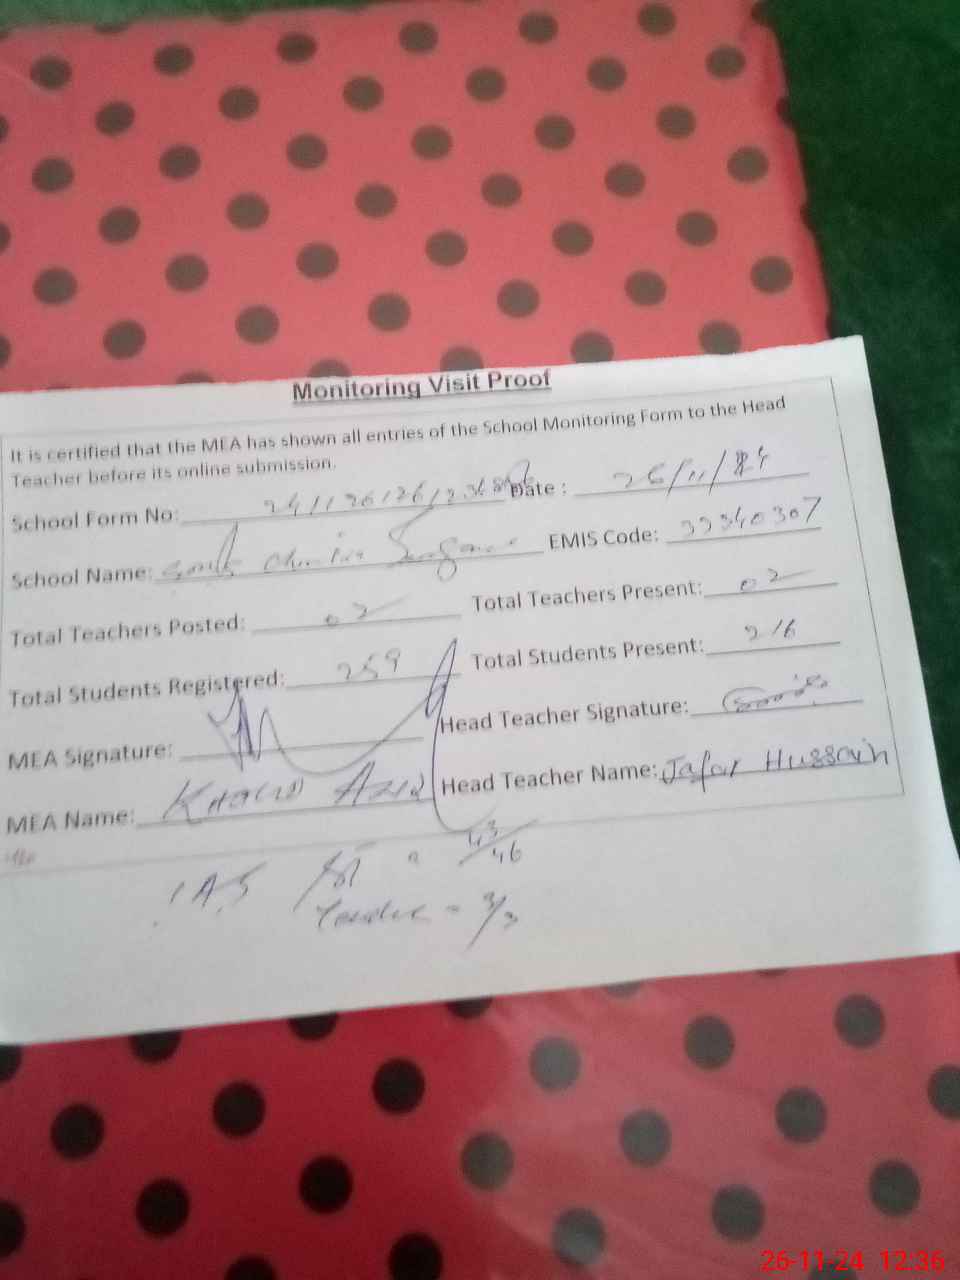 Monitoring Visit Proof
It is certified that the MEA has shown all entries of the School Monitoring Form to the Head
Teacher before its online submission.
School Form No: Date: 26/11/24
School Name: EMIS Code: 39340307
Total Teachers Posted: 02 Total Teachers Present: 02
Total Students Registered: 259 Total Students Present: 216
MEA Signature: Head Teacher Signature:
MEA Name: Khalid Aziz Head Teacher Name: Jafar Hussain
43/46
Teacher = 3/3
26-11-24 12:36